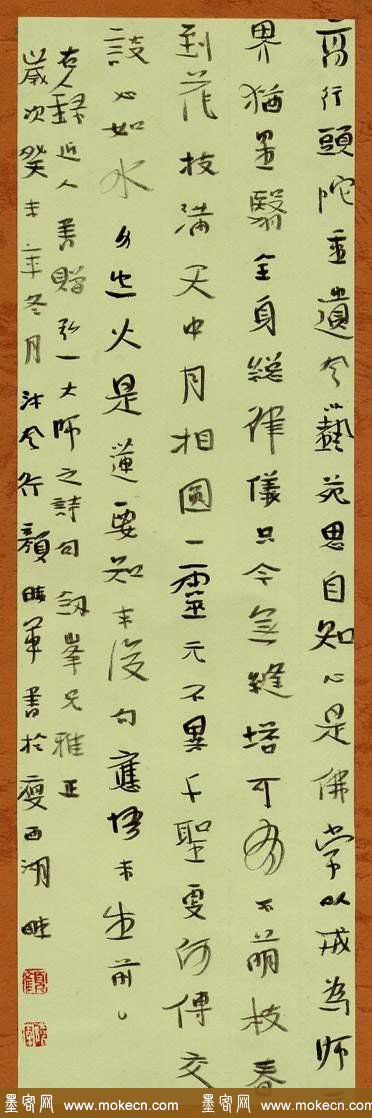 高行頭陀重遺令藝苑思自知心是佛常以戒為師三
界猶星翳全身總律儀只今無縫塔可有不萌枝春
到花枝滿天中月相圓一靈元不異千聖更何傳交
談心如水身世火是蓮要知末後句應悟未生前
右錄近人書贈弘一大師之詩句劍峯兄雅正
歲次癸未年冬月 顏 軍書於瘦西湖畔
墨客网 www.mokecn.com 墨客网 www.mokecn.com